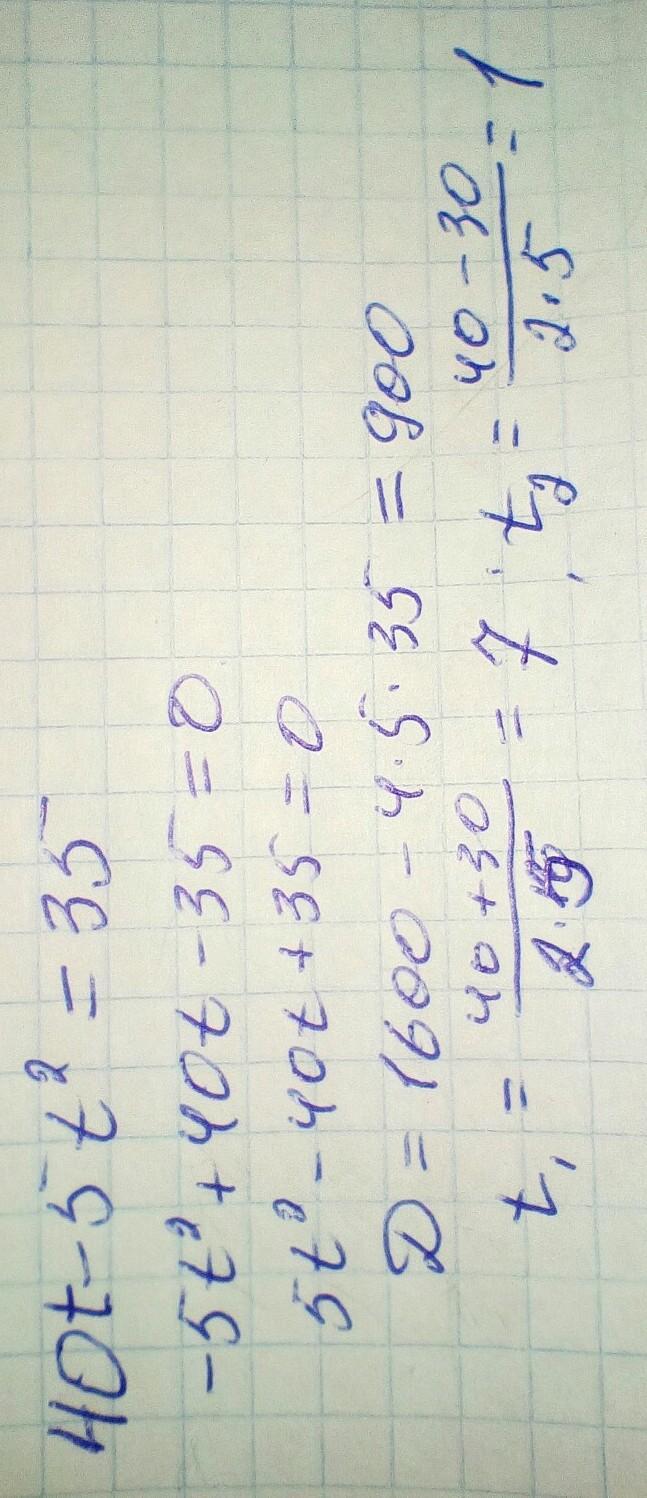 40t-5t² = 35
-5t²+40t-35=0
5t²-40t+35=0
D=1600-4·5·35=900
t₁ = (40+30)/(2·5) = 7 ; t₂ = (40-30)/(2·5) = 1